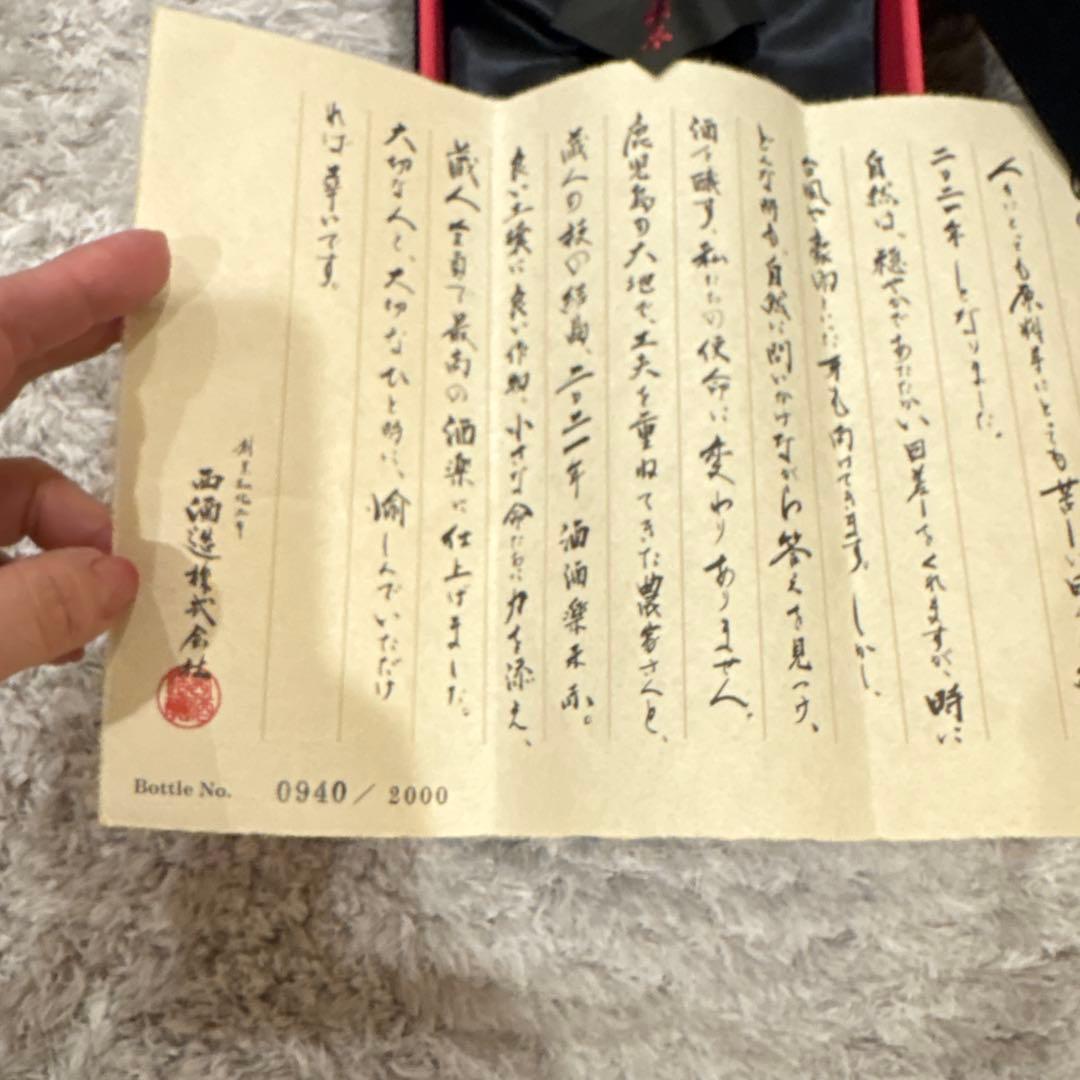 人々にとっても原料芋にとっても苦しい
二〇二一年となりました。
自然は、穏やかであたたかい日差しをくれますが、時に
台風や豪雨といった牙も向けてきます。しかし、
どんな時も、自然に問いかけながら答えを見つけ、
酒を醸す、私たちの使命に変わりありません。
鹿児島の大地で、工夫を重ねてきた農家さんと、
蔵人の技の結集、二〇二一年 酒酒楽楽 赤。
良い土壌に良い作物、小さな命たちに力を添え、
蔵人全員で最高の酒楽に仕上げました。
大切な人と、大切なひと時に、愉しんでいただけ
れば幸いです。
創業弘化二年
西酒造株式会社
Bottle No. 0940 / 2000